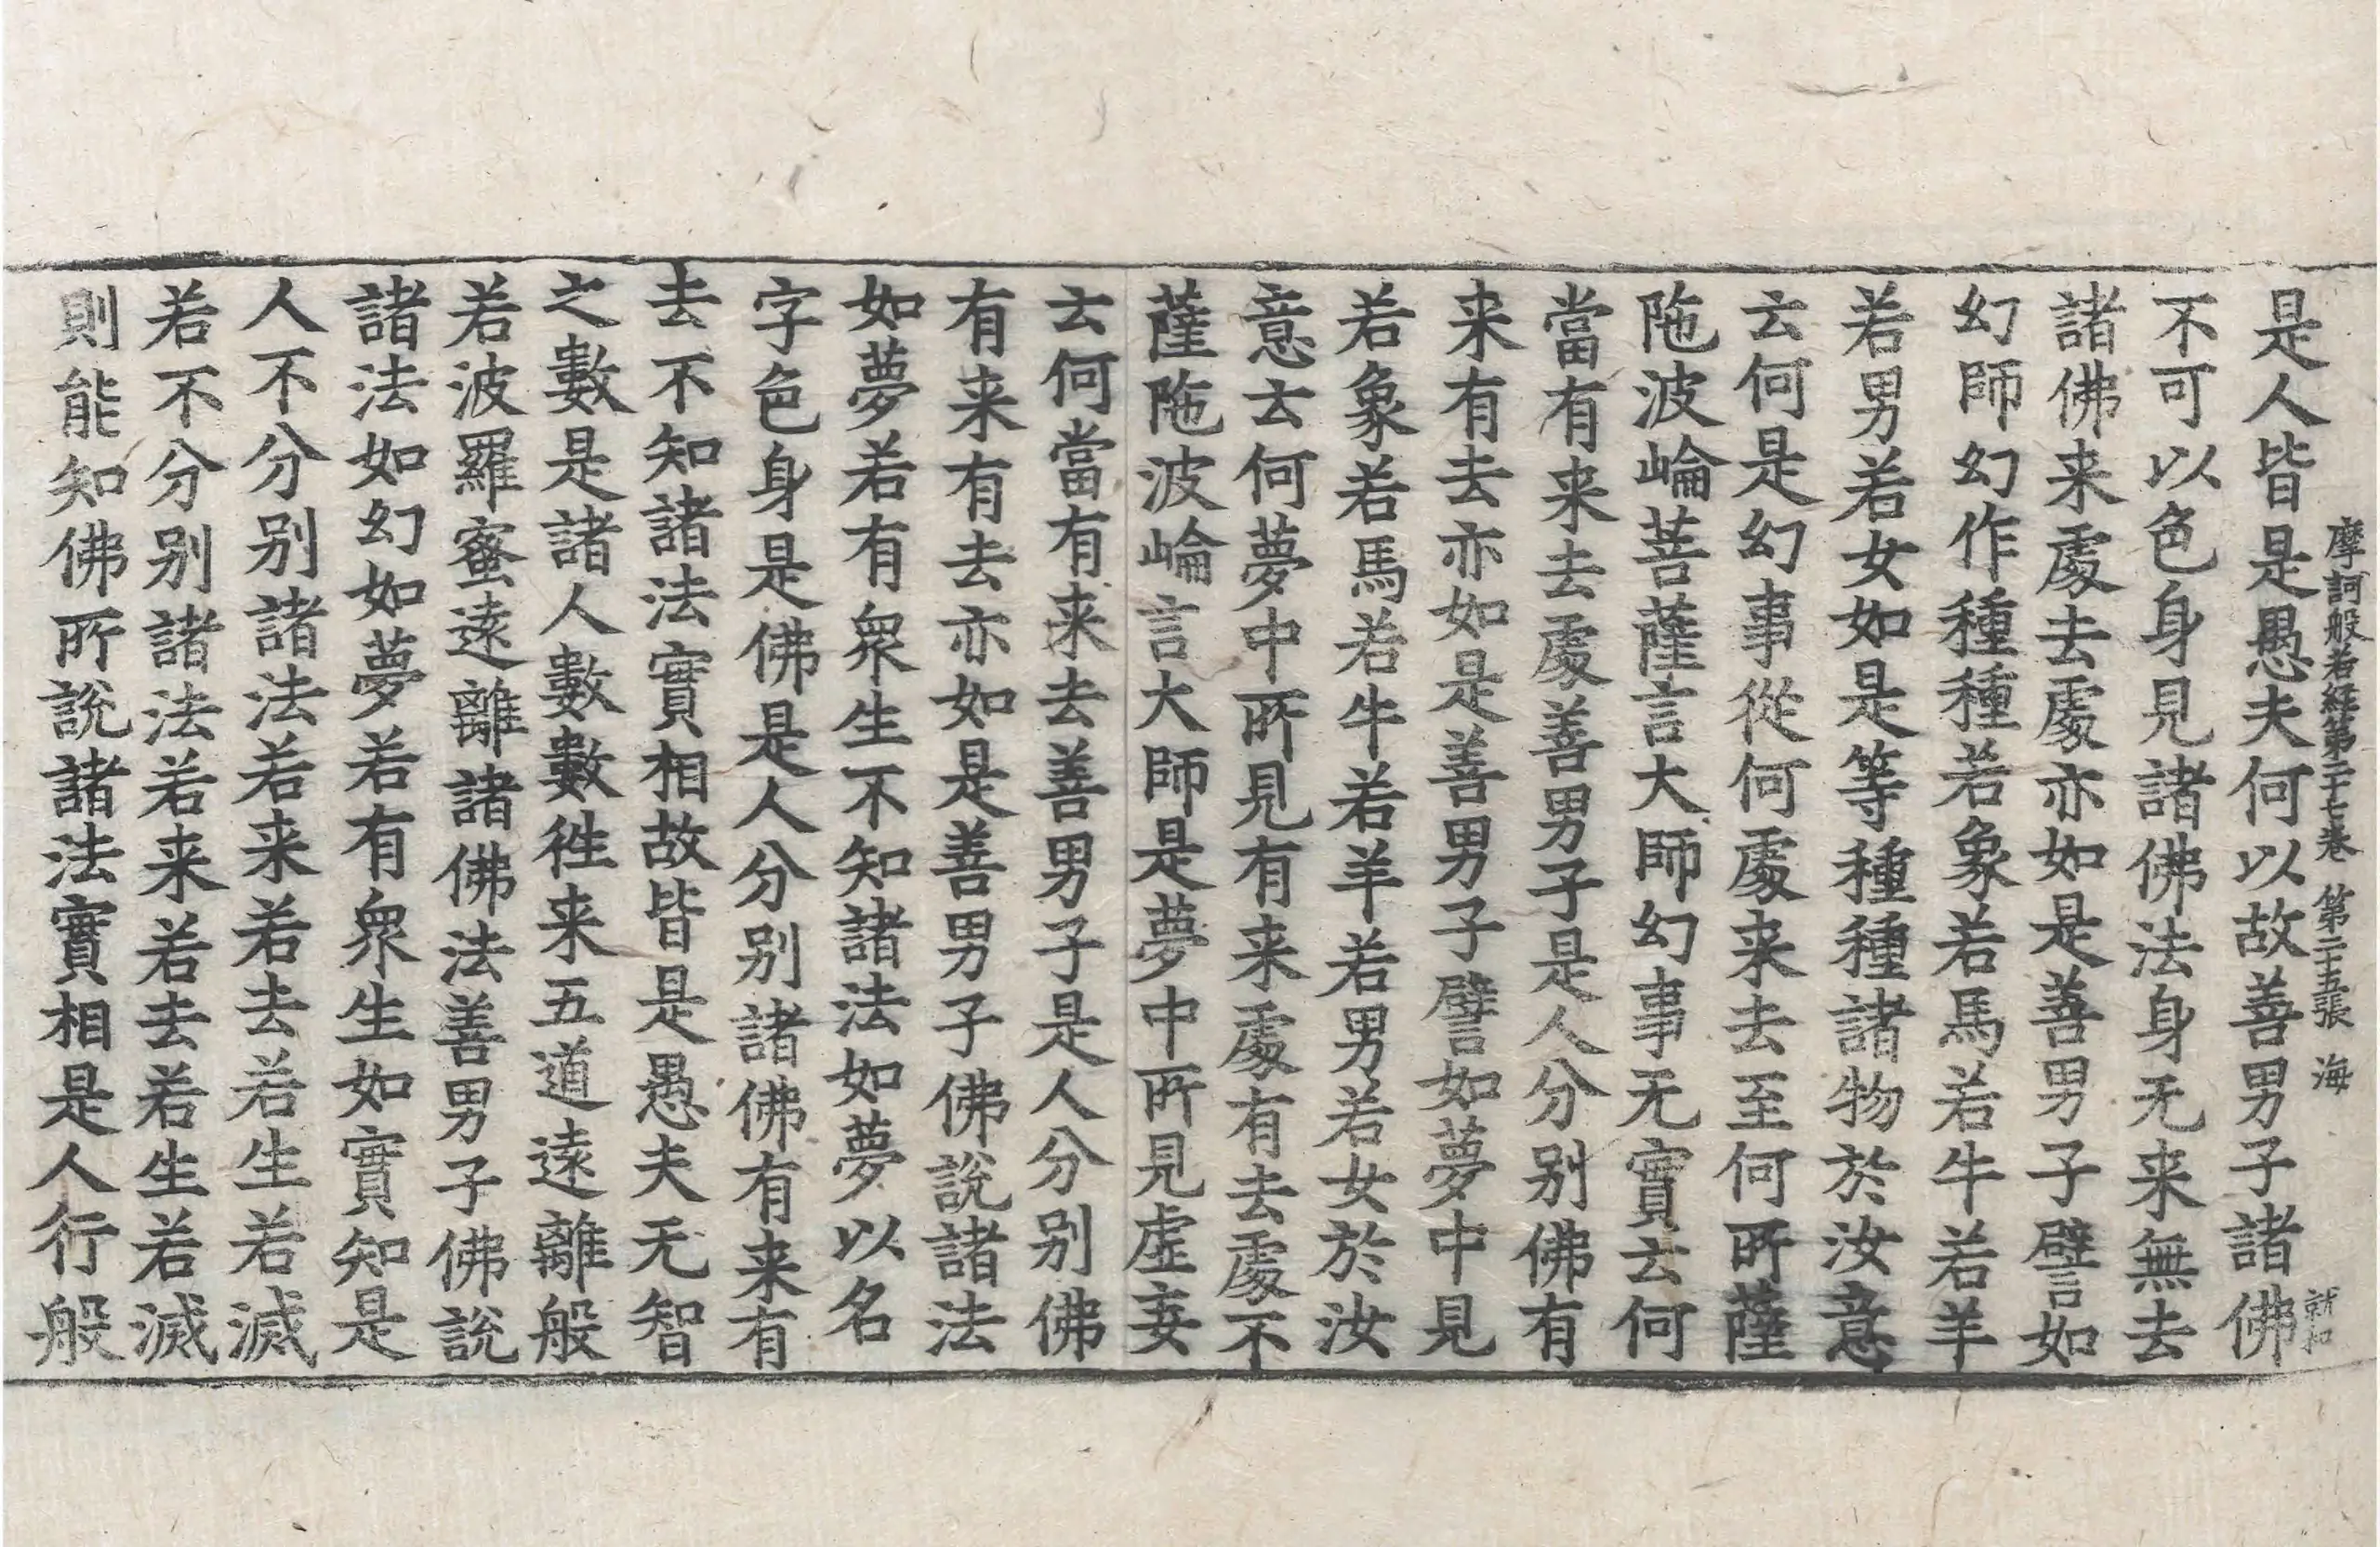 摩訶般若経第二十七卷　第二十五張　海
是人皆是愚夫何以故善男子諸佛
不可以色身見諸佛法身无来無去
諸佛来處去處亦如是善男子譬如
幻師幻作種種若象若馬若牛若羊
若男若女如是等種種諸物於汝意
云何是幻事從何處来去至何所薩
陁波崘菩薩言大師幻事无實云何
當有来去處善男子是人分别佛有
来有去亦如是善男子譬如夢中見
若象若馬若牛若羊若男若女於汝
意云何夢中所見有来處有去處不
薩陁波崘言大師是夢中所見虛妄
云何當有来去善男子是人分别佛
有来有去亦如是善男子佛說諸法
如夢若有衆生不知諸法如夢以名
字色身是佛是人分别諸佛有来有
去不知諸法實相故皆是愚夫无智
之數是諸人數數徃来五道遠離般
若波羅蜜遠離諸佛法善男子佛說
諸法如幻如夢若有衆生如實知是
人不分别諸法若来若去若生若滅
若不分别諸法若来若去若生若滅
則能知佛所說諸法實相是人行般